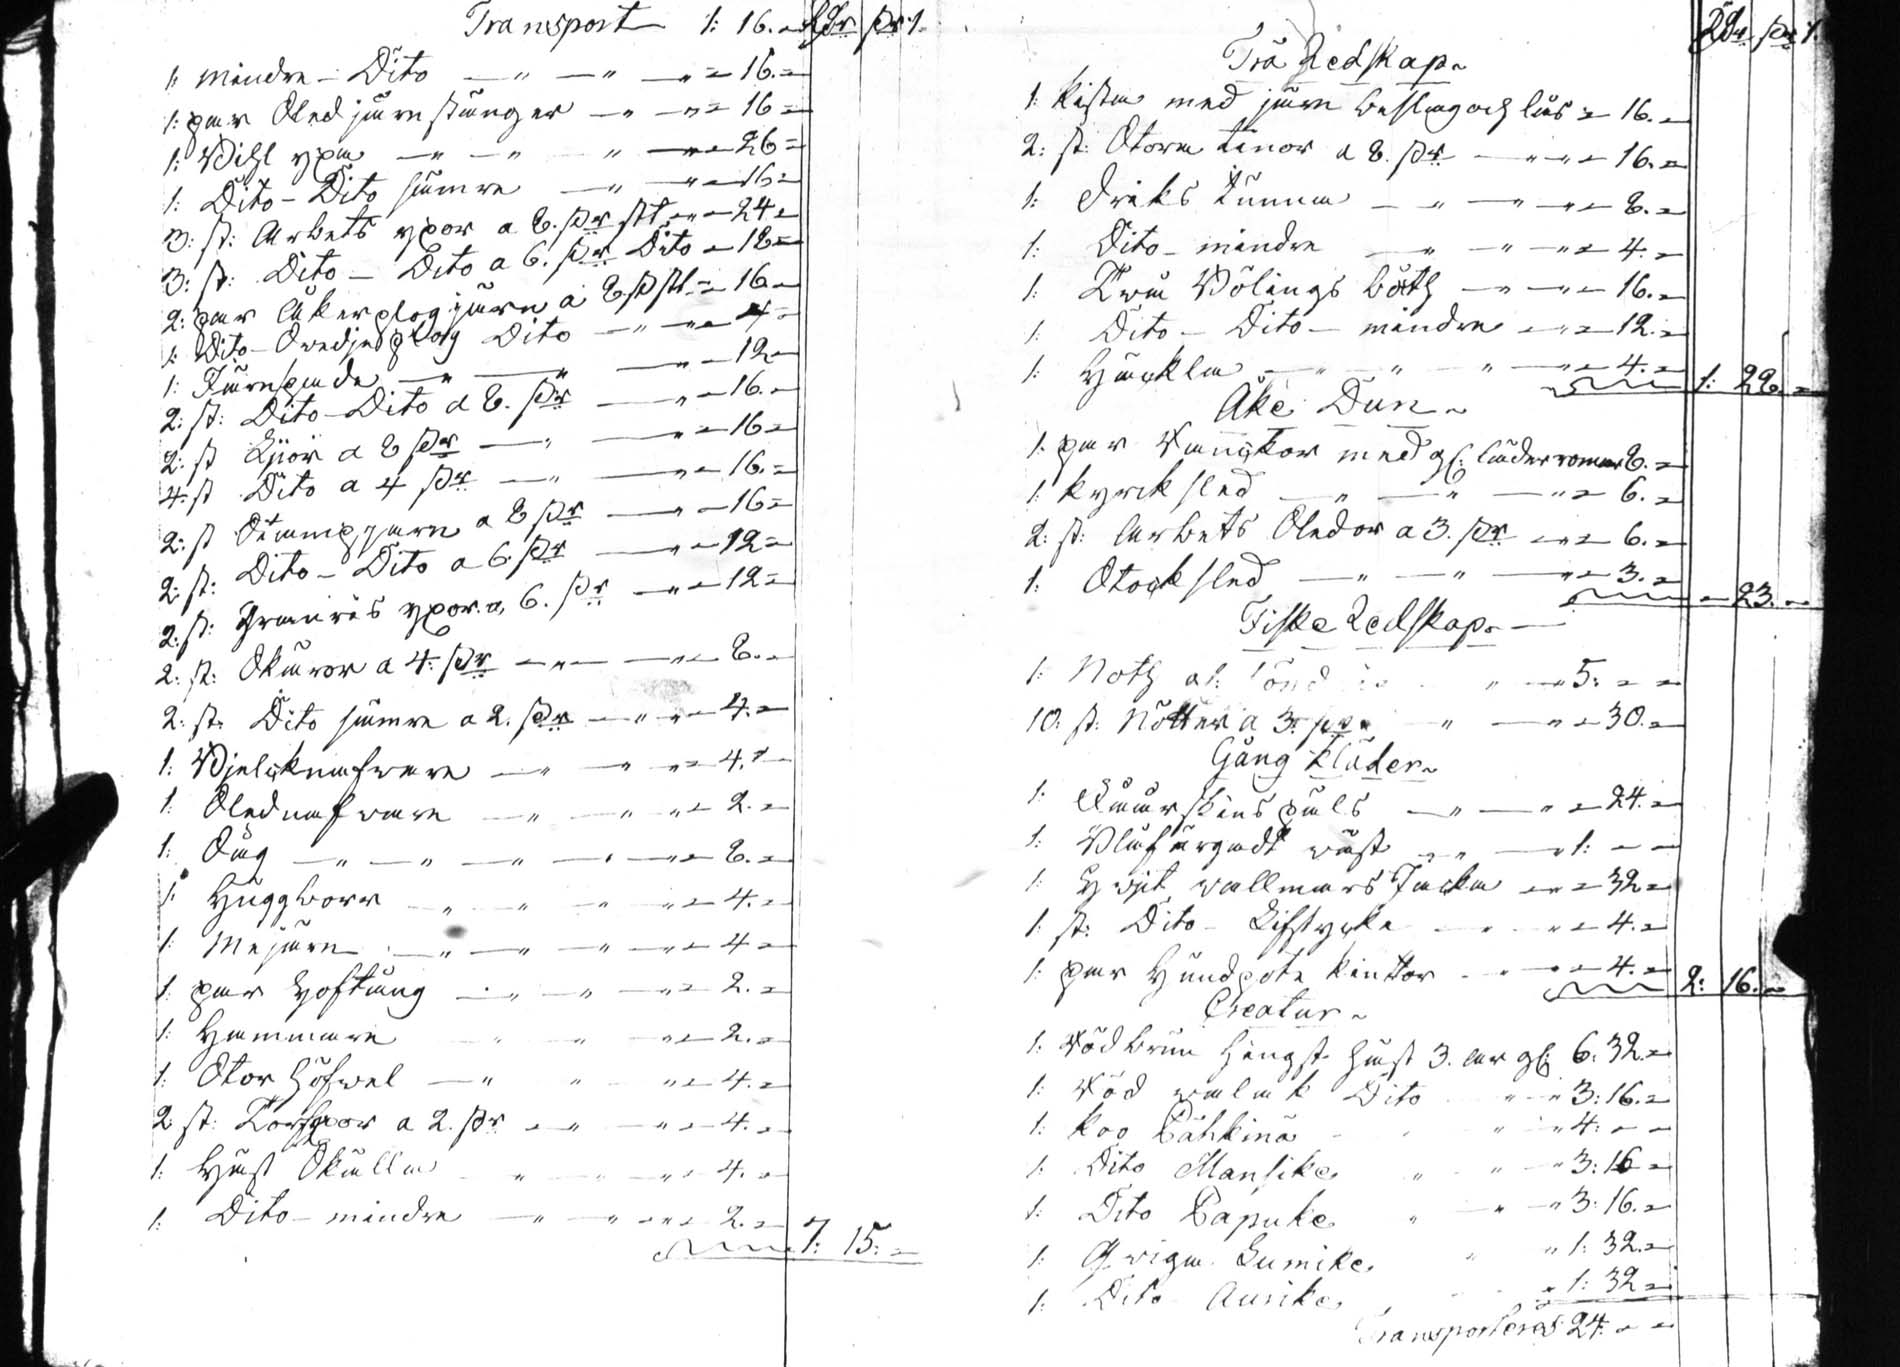 Transport 1: 16. - Rdr sk r.
1: mindre - Dito - " - " - 16. -
1: par Sledjärnstänger - " - 16 -
1: Bihl yxa - " - " - 26 -
1: Dito - Dito sämre - " - 16 -
3: st: Arbets yxor a 8. sk st - 24 -
3: st: Dito - Dito a 6. sk Dito - 18 -
2: par Åkerplogjärn a 8 sk st - 16 -
1: Dito - Svedjeplog Dito - " - 4 -
1: Järnspade - " - " - 12 -
2: st: Dito - Dito a 8. sk - " - 16. -
2: st Lijor a 8 sk - " - 16 -
4: st Dito a 4 sk - " - 16. -
2: st a 8 sk - " - 16 -
2: st: Dito - Dito a 6 sk - " - 12 -
2: st: Granris yxor a 6. sk - " - 12 -
2: st: Skäror a 4: sk - " - " - 8. -
2: st: Dito sämre a 2. sk - " - 4. -
1: Bjelcknafvare - " - " - 4. -
1: Slednafvare - " - " - 2. -
1: Såg - " - " - " - 8. -
1: Huggborr - " - " - 4. -
1: Mejärn - " - " - " - 4 -
1: par Hoftång - " - " - 2. -
1: Hammare " " - 2. -
1: Stor Höfvel - " " - 4. -
2 st: a 2. sk - " - 4. -
1: Häst Skälla " - 4. -
1: Dito - mindre - " - " - 2. - 7: 15: -
Rdr sk r
Trä Redskap
1: Kista med järn beslag och lås - 16. -
2: st: Stora tinor a 8. sk - " - 16. -
1: Driks tunna - " - " - 8. -
1: Dito - mindre - " - " - 4. -
1: Trä Bölings båth - " - 16. -
1: Dito - Dito - mindre - " - 12. -
1: Häckla - " - " - 4. - 1: 28. -
Åke Don
1: par med gl: läder 8. -
1: Kyrk sled - " - " - 6. -
2: st: Arbets Sledor a 3. sk - " - 6. -
1: Stock sled - " - " - 3. - - 23. -
Fiske Redskap -
1: Noth " - 5: - -
10: st: Nötter a 3: sk " - 30. -
Gång Kläder
1: Fårskins päls - " - " - 24. -
1: Blåfärgadt väst - " - 1: - -
1: Hvit vallmars Jacka - " - 32 -
1 st: Dito - Lifstycke - " - 4. -
1: par Hundpote kinttor - " - 4. - 2: 16. -
Creatur
1: Rödbrun Hingst häst 3. år gl: 6: 32 -
1: Röd valack Dito " " 3: 16. -
1: Koo Pähkinä " 4: - -
1: Dito Mansike " " 3: 16 -
1: Dito Papuke " " 3: 16. -
1: Qviga Lumike " " 1: 32. -
1: Dito Aurike 1: 32 -
Transporteras 24: - -